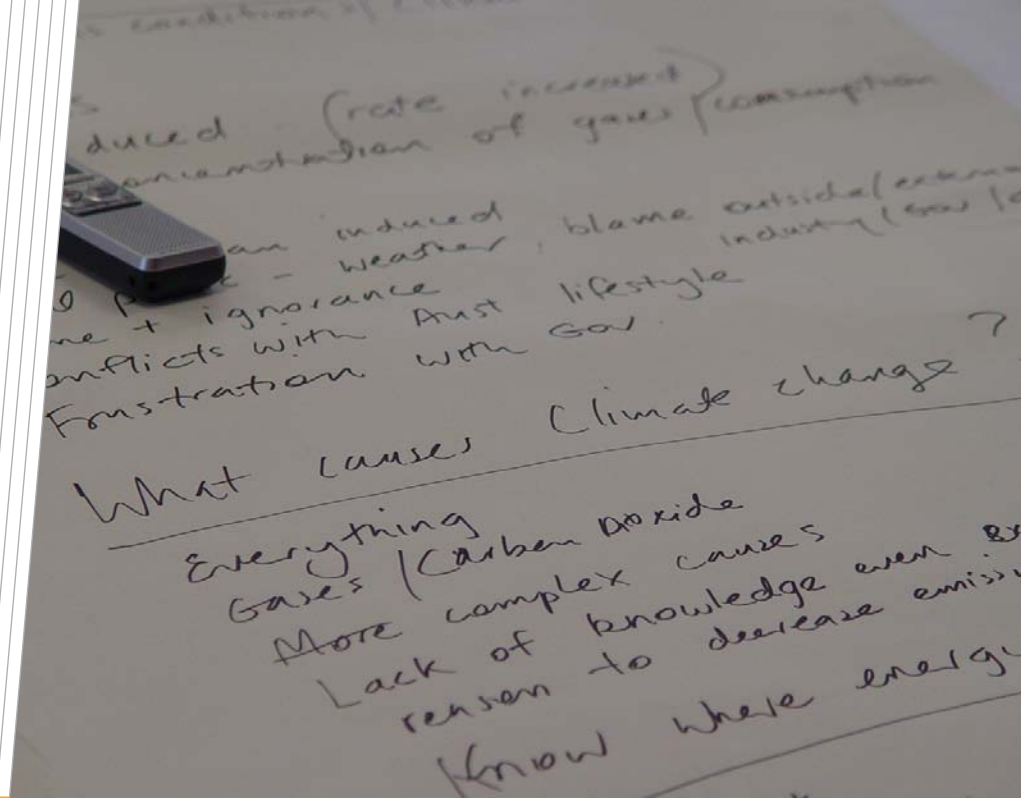 condition of
s
duced (rate increased)
concentration of gases / consumption
an induced
- weather, blame outside/
industry / Gov /
me + ignorance
onflicts with Aust lifestyle
Frustration with Gov.
What causes Climate change?
Everything
Gases / Carbon Dioxide
More complex causes
Lack of knowledge even
reason to decrease emissi
Know where energy